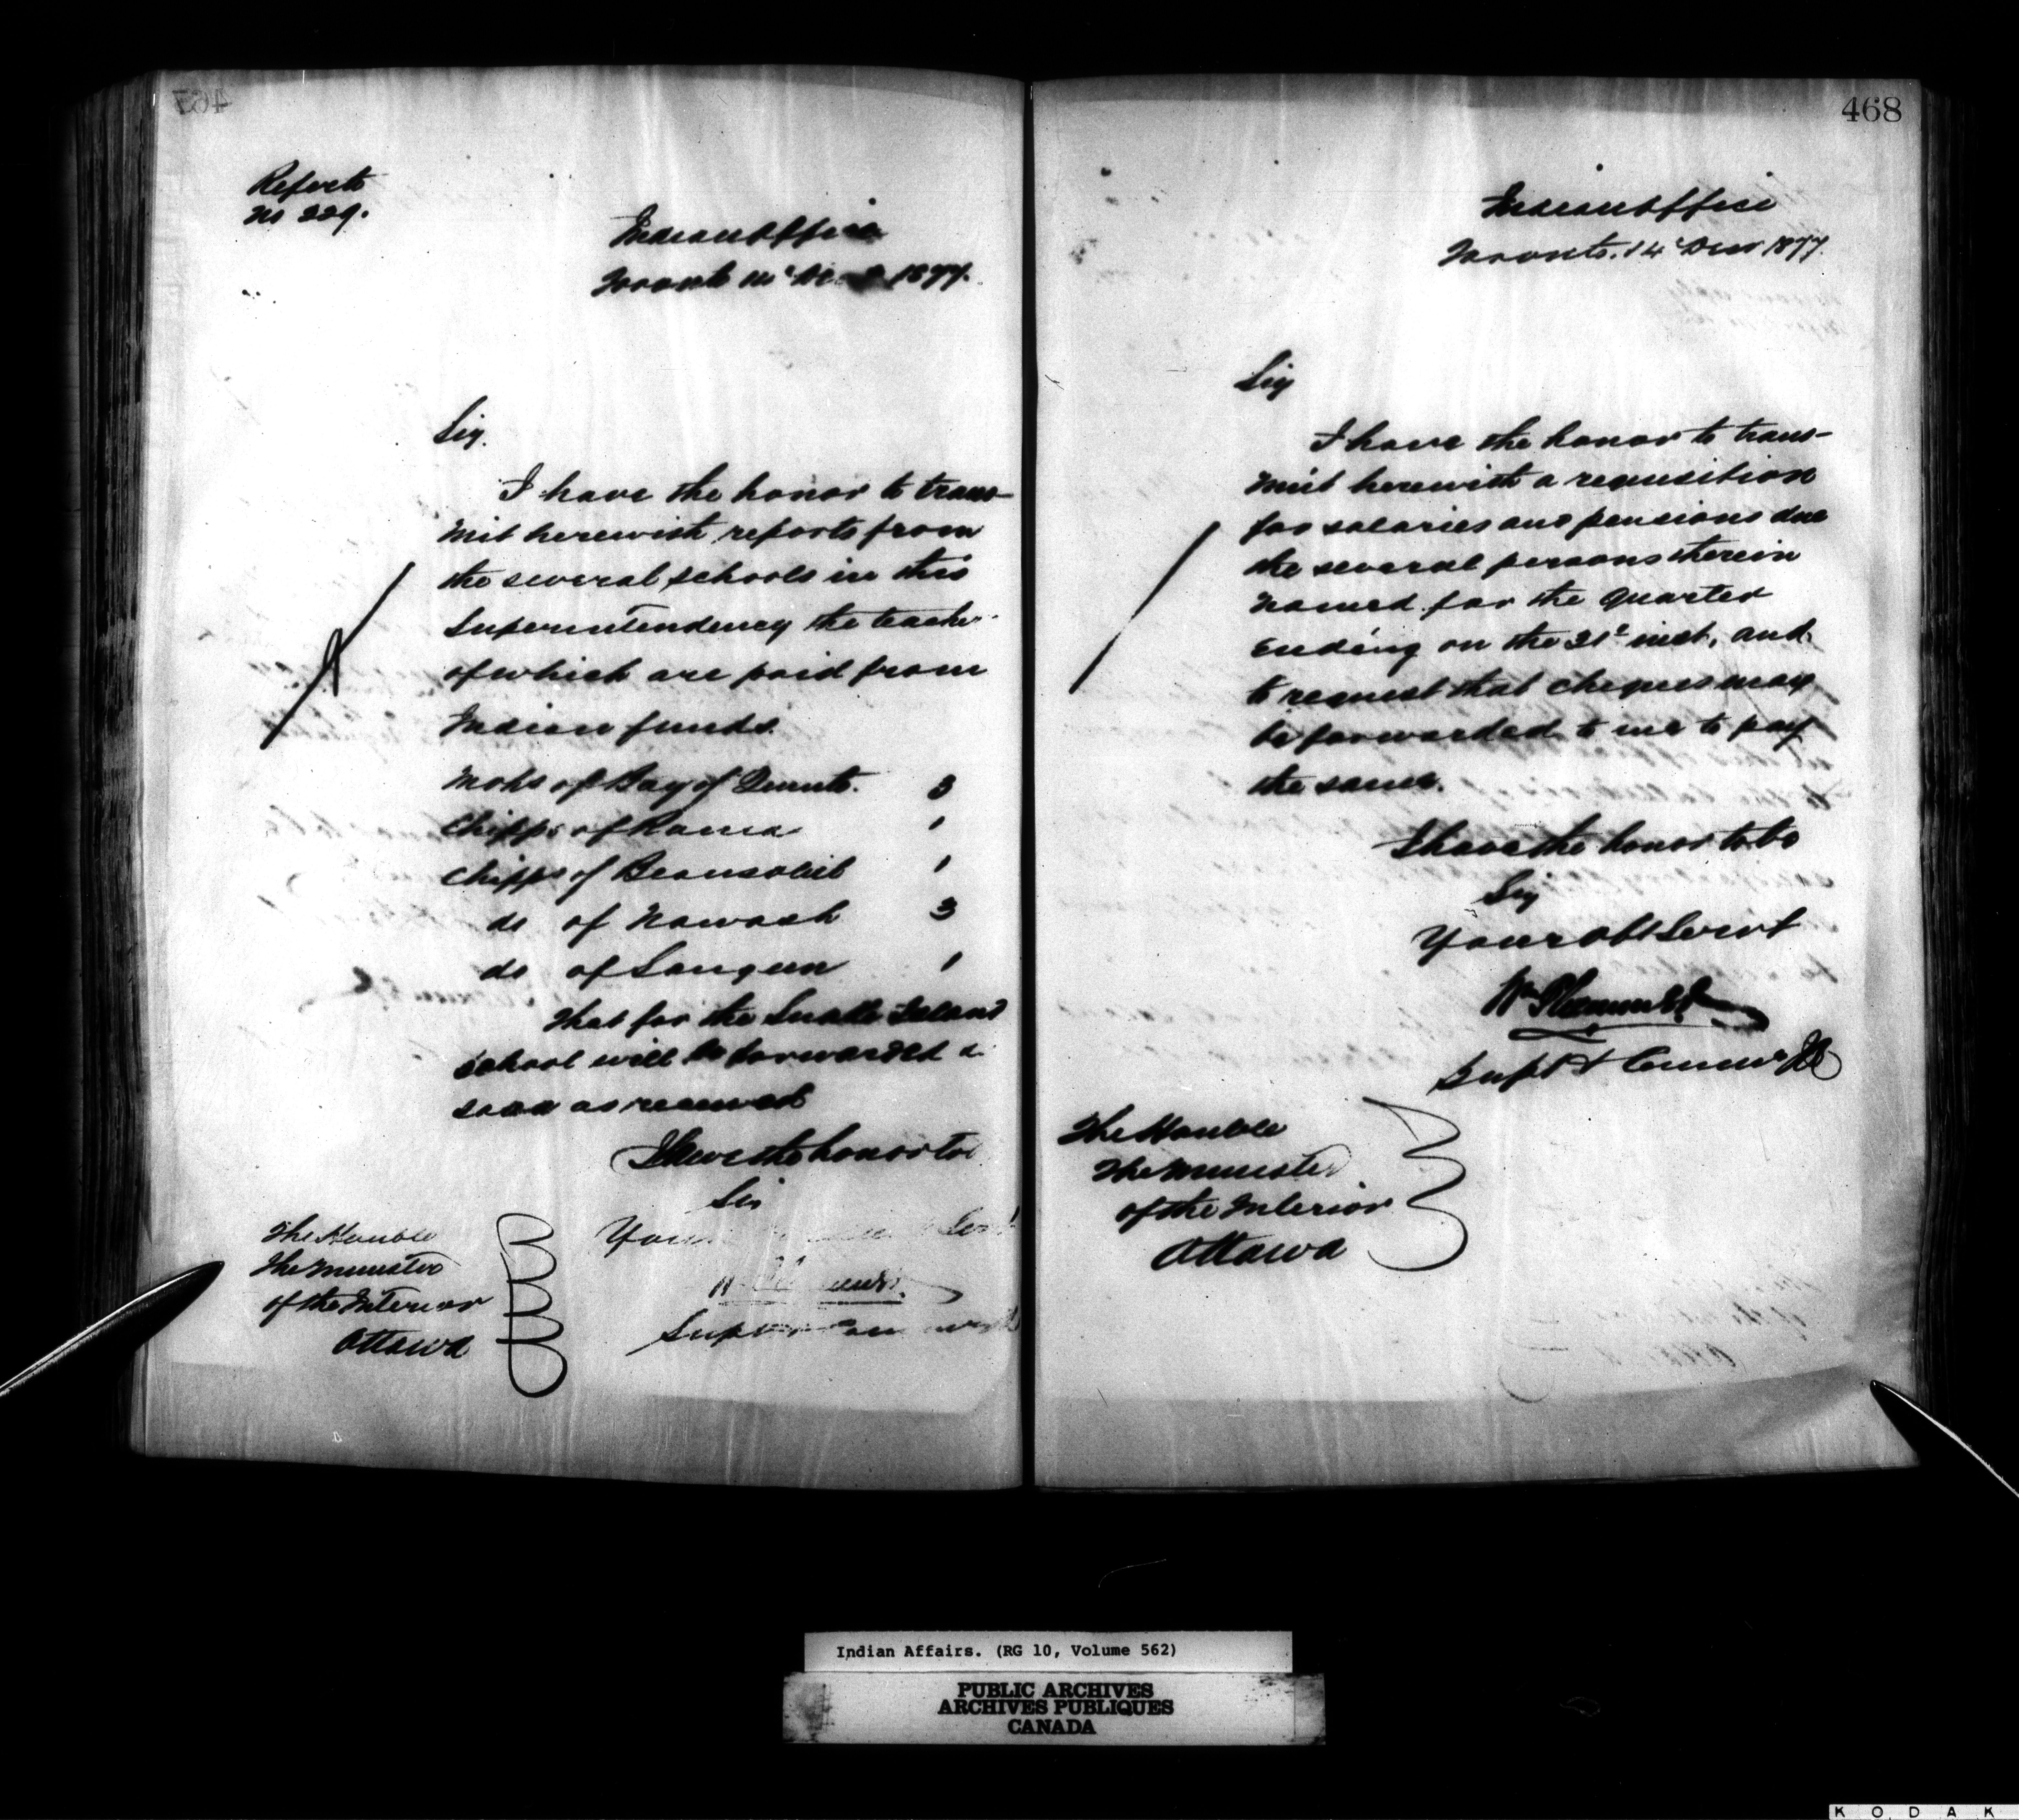 467
Reports
No 229.
Indian Office
Toronto 1877.
Sir,
I have the honor to trans-
mit herewith reports from
the several schools in this
Superintendency the teacher
of which are paid from
Indian funds.
Mohs of Bay of Quinte. 3
Chipps of Rama 1
Chipps of Beausoleil 1
do of Nawash 3
do of Saugeen 1
That for the Snake Island
school will be forwarded a
soon as received
I have the honor to
Sir
Your
The Honble
The Minister
of the Interior
Ottawa
468
Indian Office
Toronto. 14 Decr 1877.
Sir
I have the honor to trans-
mit herewith a requisition
for salaries and pensions due
the several persons therein
named for the Quarter
Ending on the 31st inst, and
to request that cheques may
be forwarded to me to pay
the same.
I have the honor to be
Sir
Your Obt Servt
Wm Plummer
Supt & Commr
The Honble
The Minister
of the Interior
Ottawa
Indian Affairs. (RG 10, Volume 562)
PUBLIC ARCHIVES
ARCHIVES PUBLIQUES
CANADA
KODAK